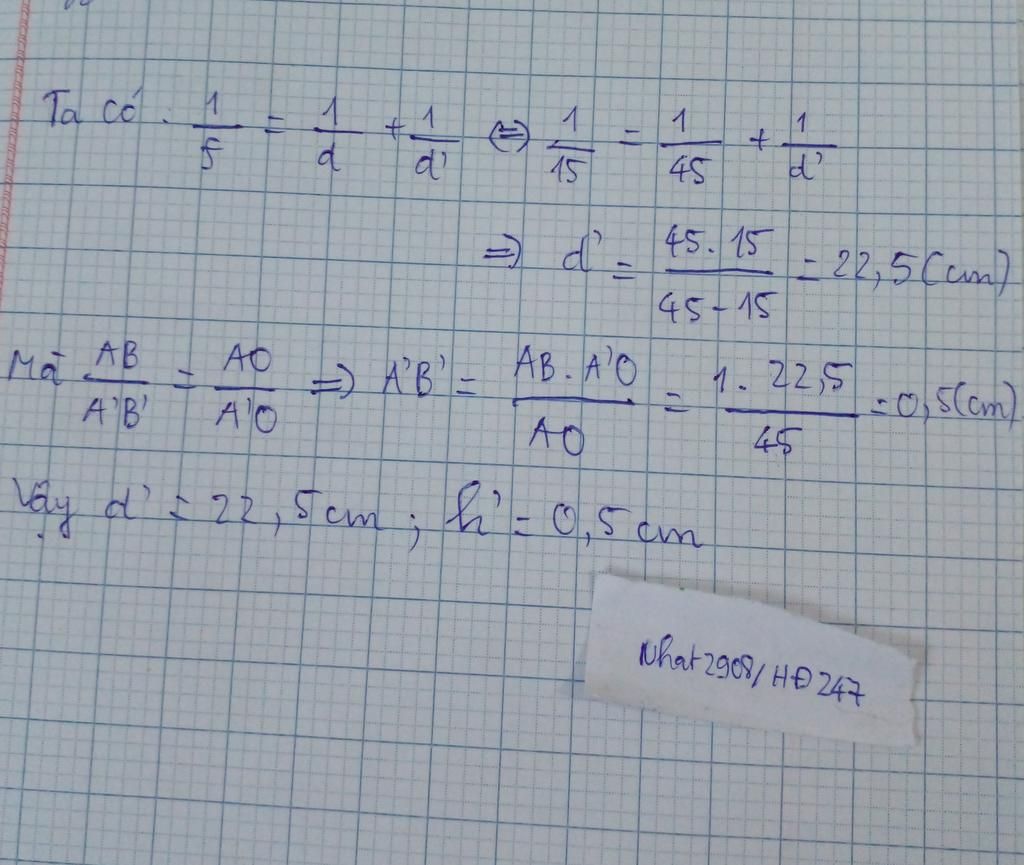 Ta có : 1/f = 1/d + 1/d' ⇔ 1/15 = 1/45 + 1/d'
⇒ d' = 45.15/45-15 = 22,5 (cm)
Mà AB/A'B' = AO/A'O ⇒ A'B' = AB.A'O/AO = 1.22,5/45 = 0,5 (cm)
Vậy d' = 22,5cm ; h' = 0,5cm
Nhat2908/HĐ247